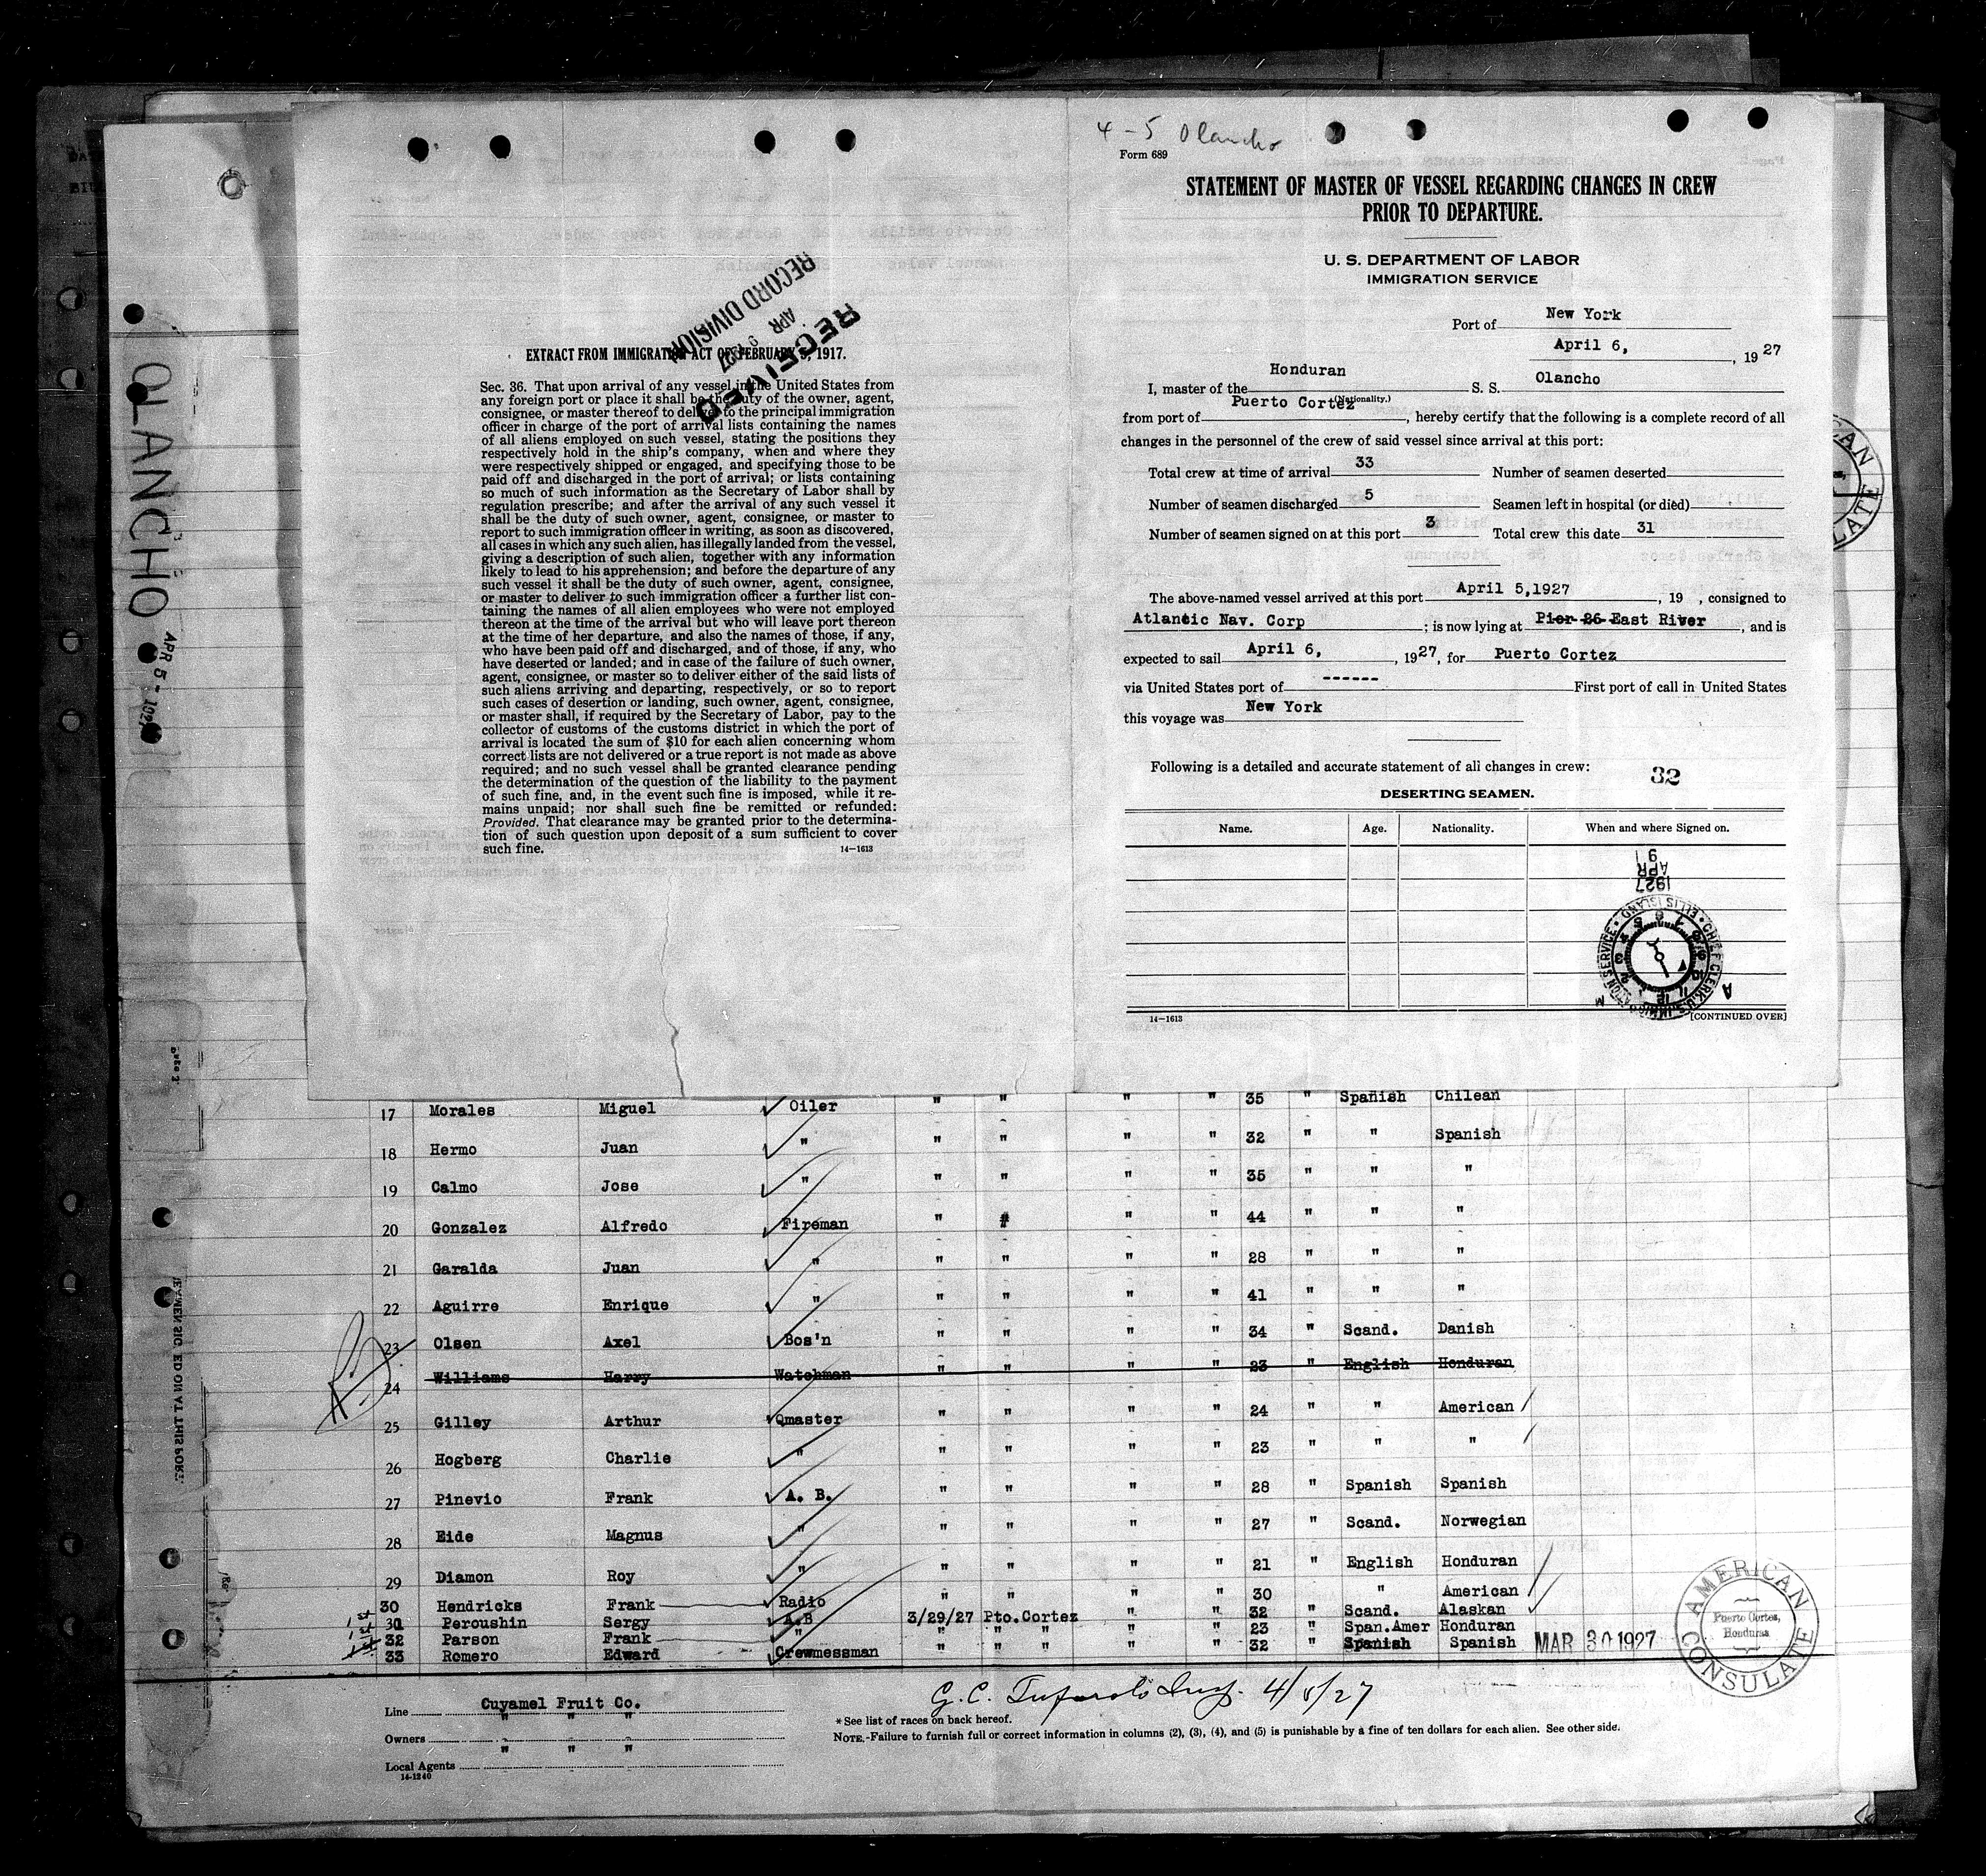 4-5 Olancho
Form 689
STATEMENT OF MASTER OF VESSEL REGARDING CHANGES IN CREW
PRIOR TO DEPARTURE.
U. S. DEPARTMENT OF LABOR
IMMIGRATION SERVICE
Port of New York
April 6, , 19 27
I, master of the Honduran S. S. Olancho
(Nationality.)
from port of Puerto Cortez , hereby certify that the following is a complete record of all
changes in the personnel of the crew of said vessel since arrival at this port:
Total crew at time of arrival 33 Number of seamen deserted
Number of seamen discharged 5 Seamen left in hospital (or died)
Number of seamen signed on at this port 3 Total crew this date 31
The above-named vessel arrived at this port April 5,1927 , 19 , consigned to
Atlantic Nav. Corp ; is now lying at Pier 26 East River , and is
expected to sail April 6, , 1927, for Puerto Cortez
via United States port of ------ First port of call in United States
this voyage was New York
Following is a detailed and accurate statement of all changes in crew:
32
DESERTING SEAMEN.
Name. Age. Nationality. When and where Signed on.
1927
APR
9
CHIEF CLERK U.S. IMMIGRATION SERVICE • ELLIS ISLAND •
A M
14—1613 [CONTINUED OVER]
RECORD DIVISION
APR 9 1927
RECEIVED
EXTRACT FROM IMMIGRATION ACT OF FEBRUARY 5, 1917.
Sec. 36. That upon arrival of any vessel in the United States from
any foreign port or place it shall be the duty of the owner, agent,
consignee, or master thereof to deliver to the principal immigration
officer in charge of the port of arrival lists containing the names
of all aliens employed on such vessel, stating the positions they
respectively hold in the ship's company, when and where they
were respectively shipped or engaged, and specifying those to be
paid off and discharged in the port of arrival; or lists containing
so much of such information as the Secretary of Labor shall by
regulation prescribe; and after the arrival of any such vessel it
shall be the duty of such owner, agent, consignee, or master to
report to such immigration officer in writing, as soon as discovered,
all cases in which any such alien, has illegally landed from the vessel,
giving a description of such alien, together with any information
likely to lead to his apprehension; and before the departure of any
such vessel it shall be the duty of such owner, agent, consignee,
or master to deliver to such immigration officer a further list con-
taining the names of all alien employees who were not employed
thereon at the time of the arrival but who will leave port thereon
at the time of her departure, and also the names of those, if any,
who have been paid off and discharged, and of those, if any, who
have deserted or landed; and in case of the failure of such owner,
agent, consignee, or master so to deliver either of the said lists of
such aliens arriving and departing, respectively, or so to report
such cases of desertion or landing, such owner, agent, consignee,
or master shall, if required by the Secretary of Labor, pay to the
collector of customs of the customs district in which the port of
arrival is located the sum of $10 for each alien concerning whom
correct lists are not delivered or a true report is not made as above
required; and no such vessel shall be granted clearance pending
the determination of the question of the liability to the payment
of such fine, and, in the event such fine is imposed, while it re-
mains unpaid; nor shall such fine be remitted or refunded:
Provided, That clearance may be granted prior to the determina-
tion of such question upon deposit of a sum sufficient to cover
such fine. 14—1613
OLANCHO
APR 5 - 1927
17 Morales Miguel Oiler " " " " 35 " Spanish Chilean
18 Hermo Juan " " " " " 32 " " Spanish
19 Calmo Jose " " " " " 35 " " "
20 Gonzalez Alfredo Fireman " " " " 44 " " "
21 Garalda Juan " " " " " 28 " " "
22 Aguirre Enrique " " " " " 41 " " "
23 Olsen Axel Bos'n " " " " 34 " Scand. Danish
24 Williams Harry Watchman " " " " 23 " English Honduran
25 Gilley Arthur Qmaster " " " " 24 " " American
26 Hogberg Charlie " " " " " 23 " " "
27 Pinevio Frank A. B. " " " " 28 " Spanish Spanish
28 Eide Magnus " " " " " 27 " Scand. Norwegian
29 Diamon Roy " " " " " 21 " English Honduran
30 Hendricks Frank Radio " " " " 30 " American
1st 31 Peroushin Sergy A.B 3/29/27 Pto.Cortez " " 32 " Scand. Alaskan
1st 32 Parson Frank " " " " " " 23 " Span.Amer Honduran
33 Romero Edward Crewmessman " " " " " 32 " Spanish Spanish
MAR 30 1927
AMERICAN CONSULATE
Puerto Cortes,
Honduras
Line Cuyamel Fruit Co.
Owners " " "
Local Agents " " "
14-1240
G. C. 4/5/27
* See list of races on back hereof.
NOTE.-Failure to furnish full or correct information in columns (2), (3), (4), and (5) is punishable by a fine of ten dollars for each alien. See other side.